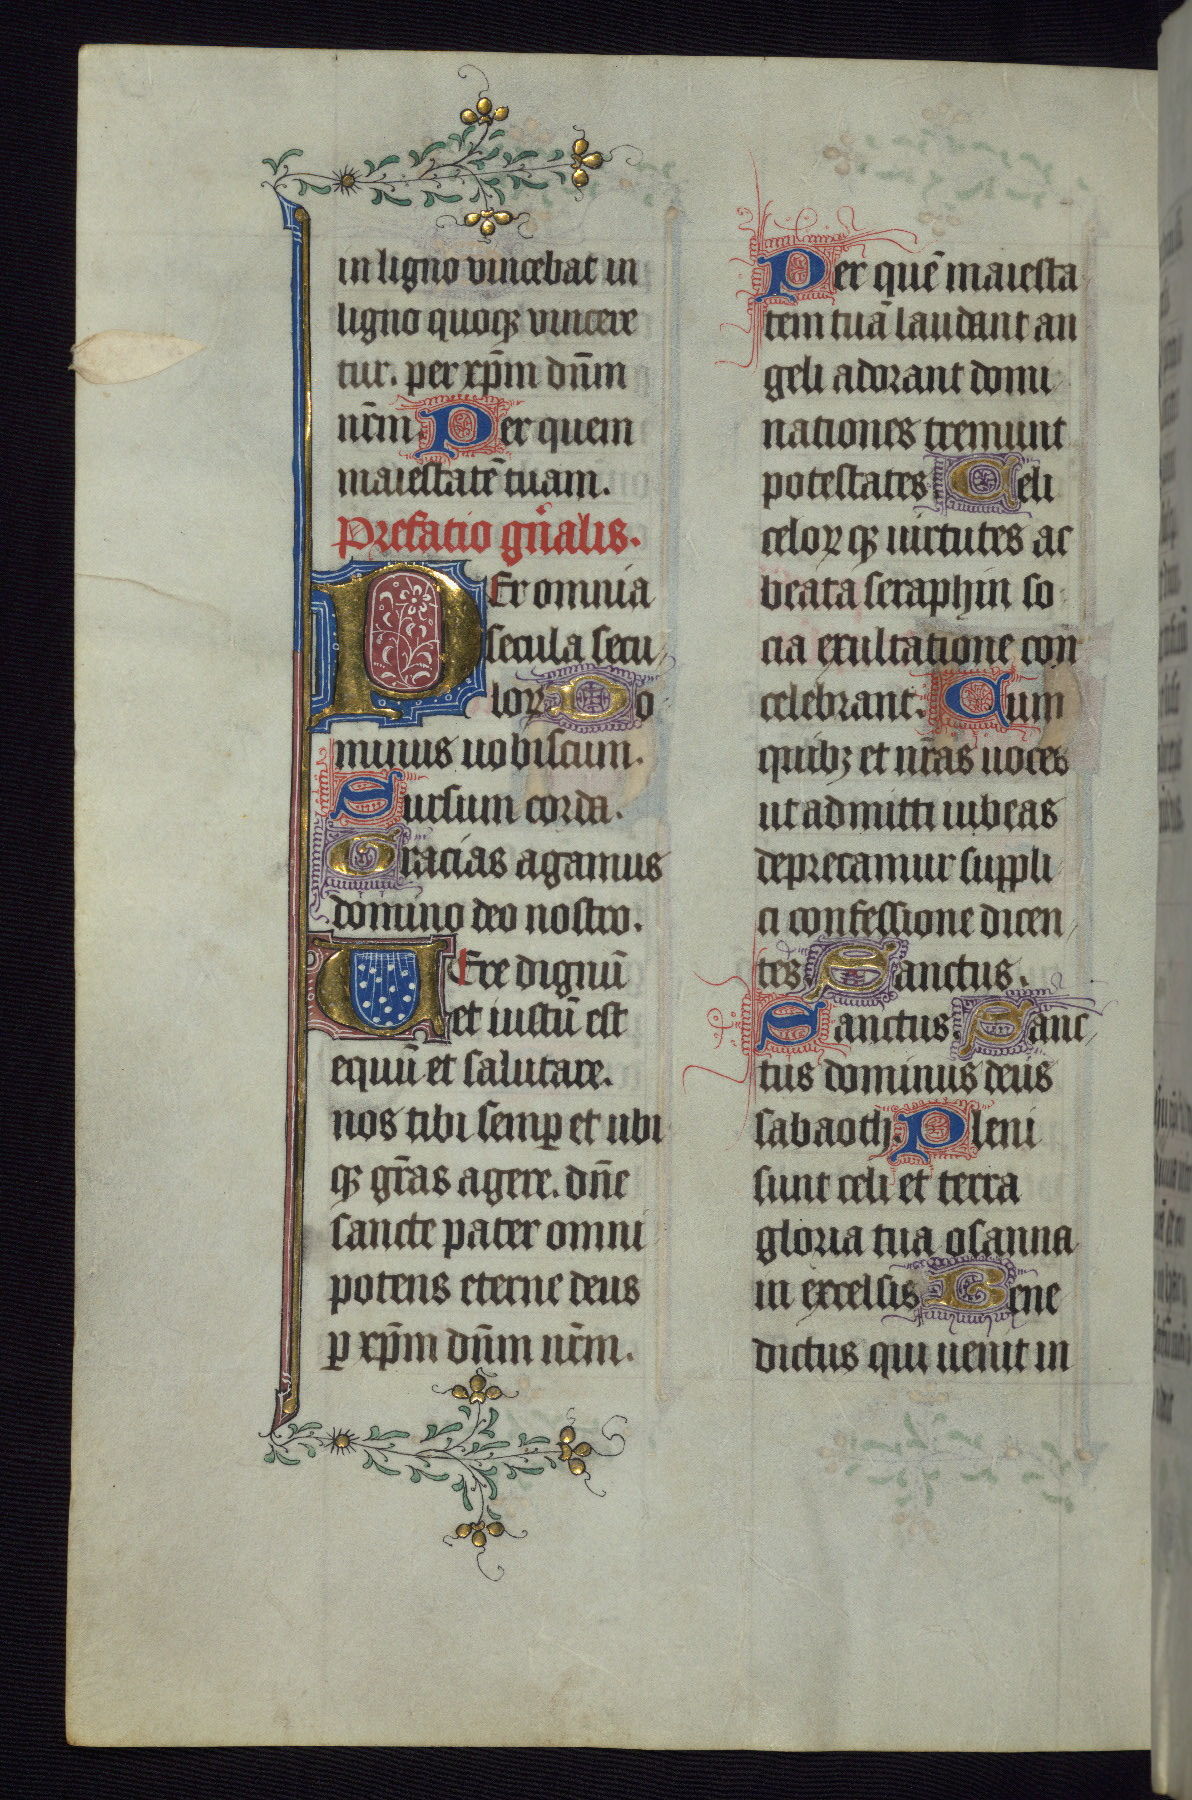 in ligno vincebat in
ligno quoqꝫ vincere
tur. per xp̄m dn̄m
nr̄m. Per quem
maiestatē tuam.
Prefatio gn̄alis.
PEr omnia
secula secu
loꝝ Do
minus uobiscum.
Sursum corda.
Gracias agamus
domino deo nostro.
VEre dignū
et iustū est
equū et salutare.
nos tibi semꝑ et ubi
qꝫ gr̄as agere. dn̄e
sancte pater omni
potens eterne deus
ꝑ xp̄m dn̄m nr̄m.
Per quē maiesta
tem tuā laudant an
geli adorant domi
nationes tremunt
potestates Celi
celoꝝ qꝫ uirtutes ac
beata seraphin so
cia exultatione con
celebrant. Cum
quibꝫ et nr̄as uoces
ut admitti iubeas
deprecamur suppli
ci confessione dicen
tes Sanctus.
Sanctus. Sanc
tus dominus deus
sabaoth. Pleni
sunt celi et terra
gloria tua osanna
in excelsis Bene
dictus qui uenit in